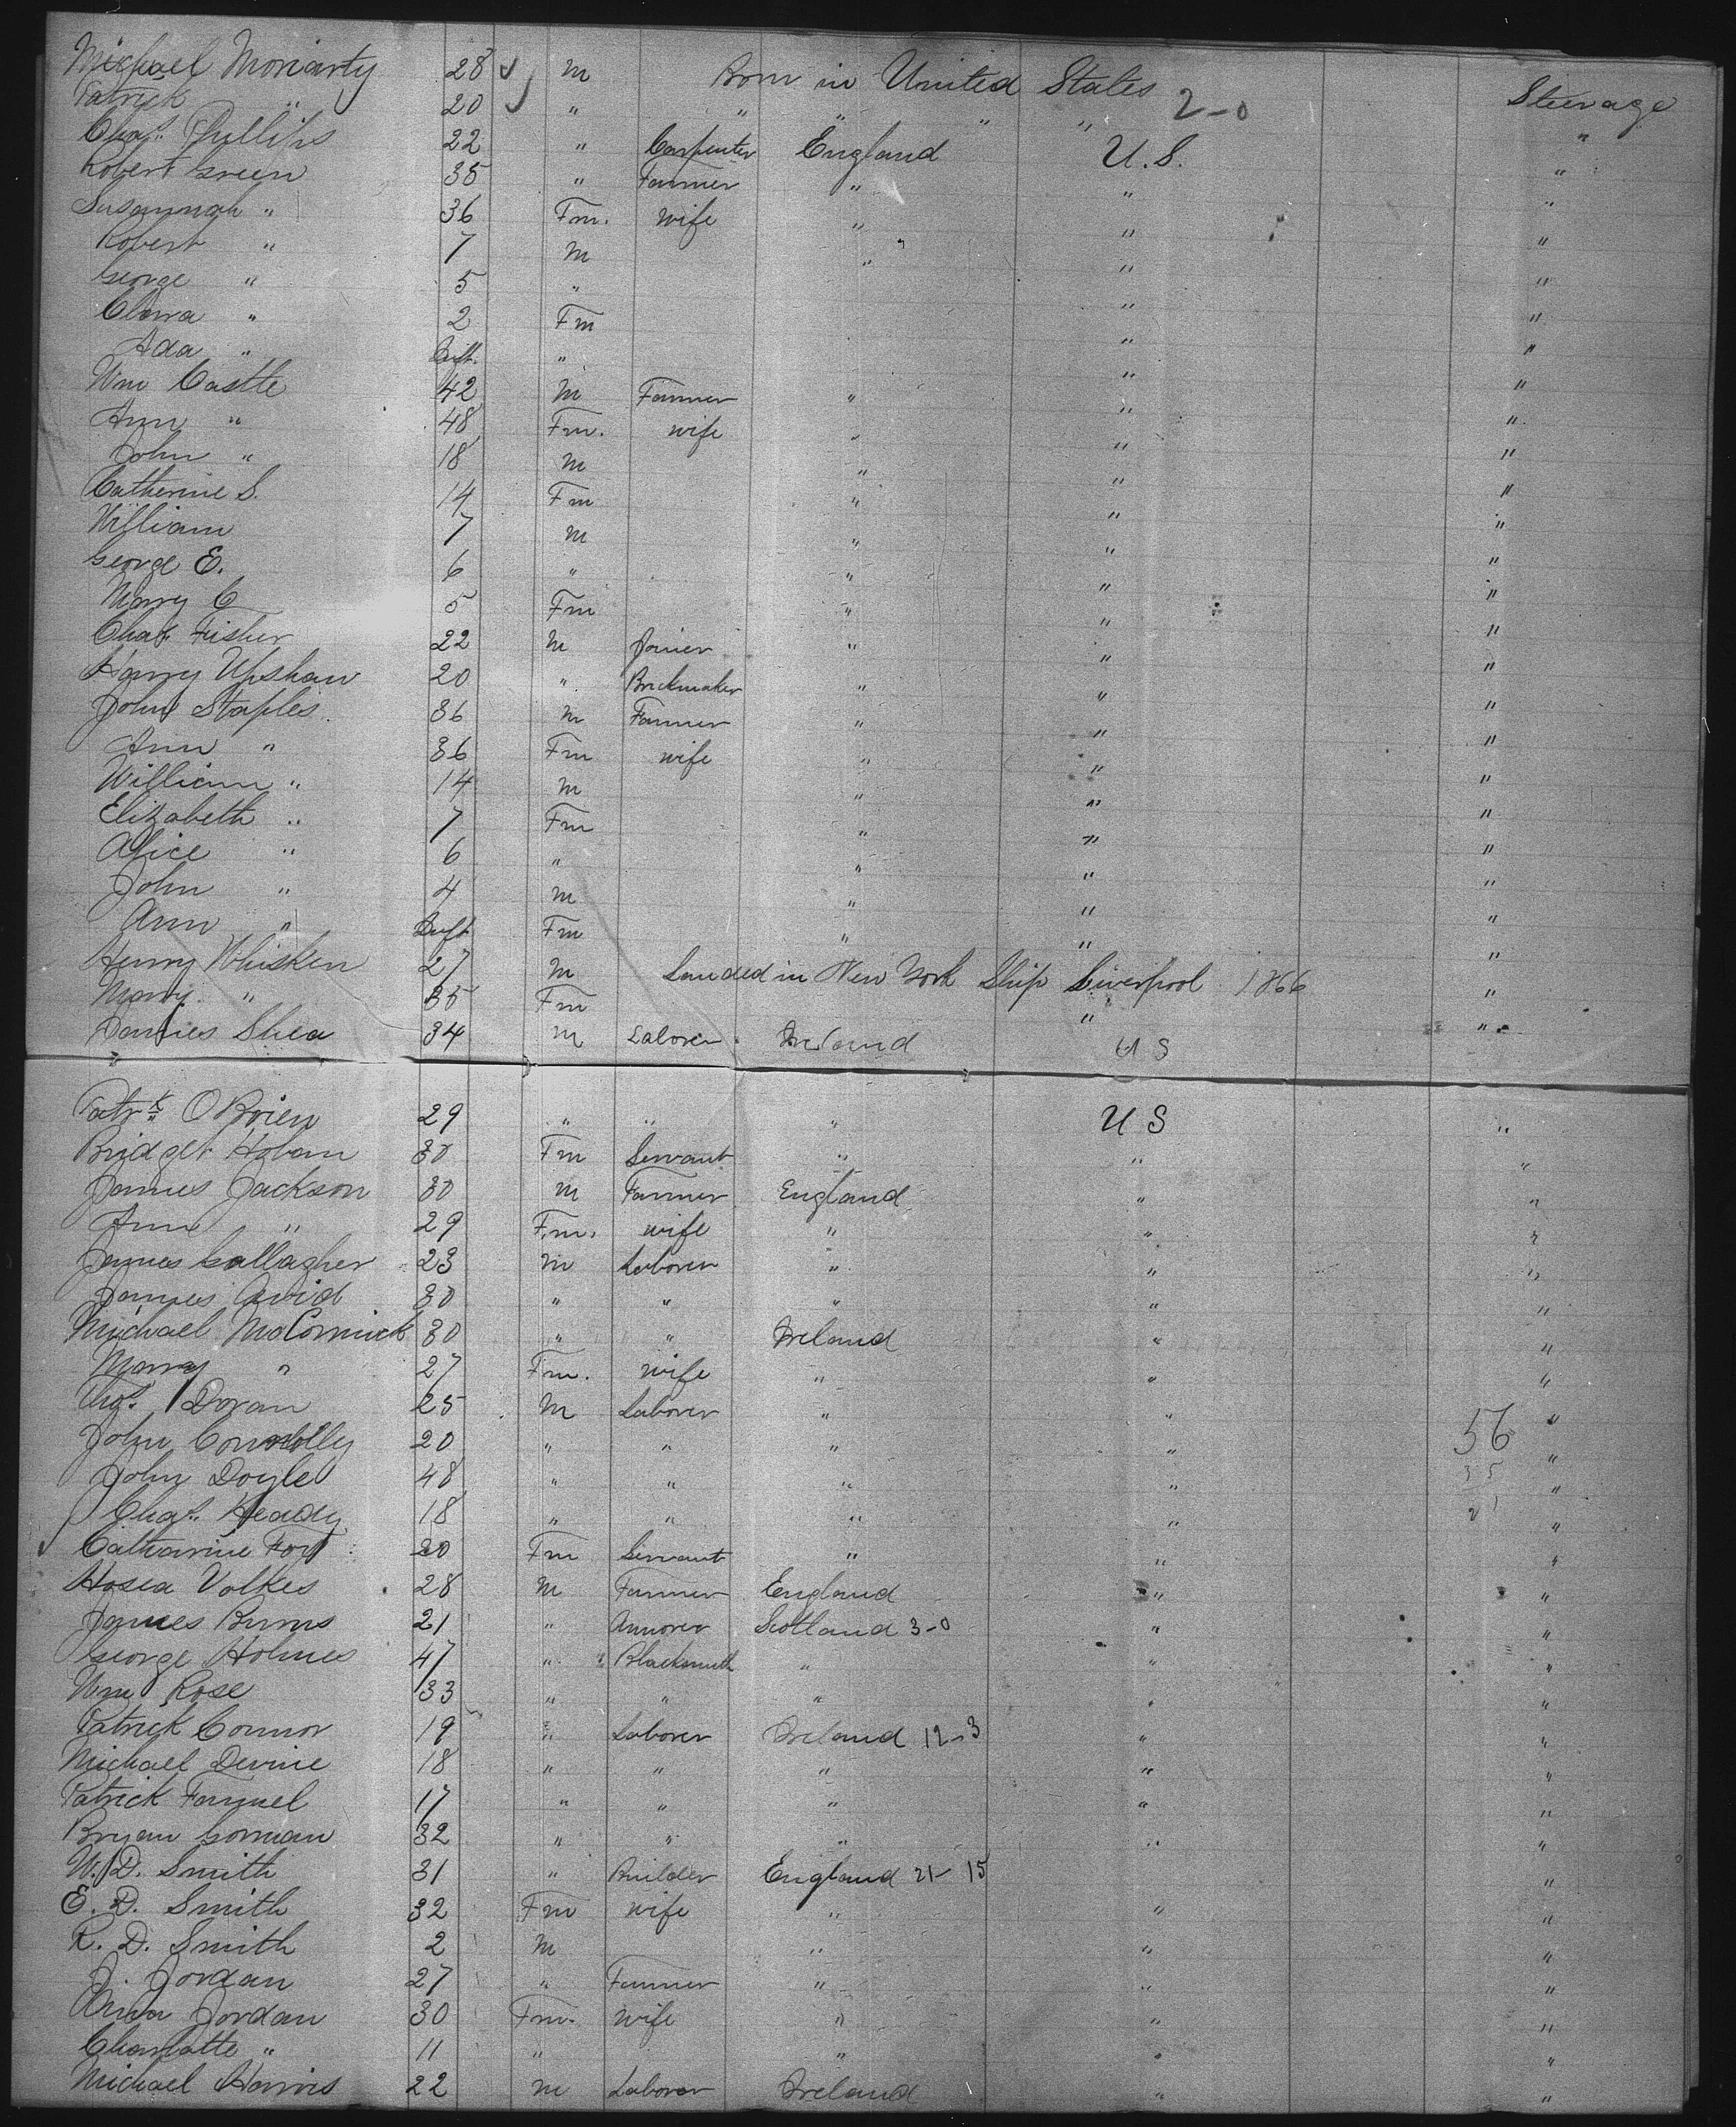 Michael Moriarty 28 m Born in United States 2-0 Steerage
Patrick " 20 " " " " " "
Chas. Phillips 22 " Carpenter England U.S. "
Robert Green 35 " Farmer " " "
Susannah " 36 Fm. wife " " "
Robert " 7 m " " "
George " 5 " " "
Clara " 2 Fm " "
Ada " Inft. " " "
Wm Castle 42 m Farmer " " "
Ann " 48 Fm. wife " " "
John " 18 m " " "
Catherine S. 14 Fm " " "
William 7 m " " "
George E. 6 " " " "
Mary C 5 Fm " " "
Chas. Fisher 22 m Joiner " " "
Harry Upshaw 20 " Brickmaker " " "
John Staples 36 m Farmer " " "
Ann " 36 Fm wife " " "
William " 14 m " " "
Elizabeth " 7 Fm " " "
Alice " 6 " " " "
John " 4 m " " "
Ann " Inft Fm " " "
Henry Whisken 27 m Landed in New York Ship Liverpool 1866 "
Mary " 35 Fm " "
James Shea 34 m Laborer Ireland U S "
Patrk O Brien 29 " " " U S "
Bridget Hoban 30 Fm Servant " " "
James Jackson 30 m Farmer England " "
Ann " 29 Fm. wife " " "
James Gallagher 23 m Laborer " " "
James 30 " " " " "
Michael McCormick 30 " " Ireland " "
Mary " 27 Fm. wife " " "
Thos. Doran 25 m Laborer " " "
John Connolly 20 " " " " 56 "
John Doyle 48 " " " " 35 "
Chas. Heady 18 " " " " 21 "
Catharine Fox 20 Fm Servant " " "
Hosea Volkes 28 m Farmer England " "
James Burns 21 " Scotland 3-0 " "
George Holmes 47 " Blacksmith " " "
Wm Rose 33 " " " " "
Patrick Connor 19 " Laborer Ireland 12-3 " "
Michael Devine 18 " " " " "
Patrick Farmel 17 " " " " "
Bryan Gorman 32 " " " " "
W. D. Smith 31 " Builder England 21-15 "
E. D. Smith 32 Fm wife " " "
R. D. Smith 2 m " " "
J. Jordan 27 " Farmer " " "
Jordan 30 Fm. wife " " "
Charlotte " 11 " " " "
Michael Harris 22 m Laborer Ireland " "